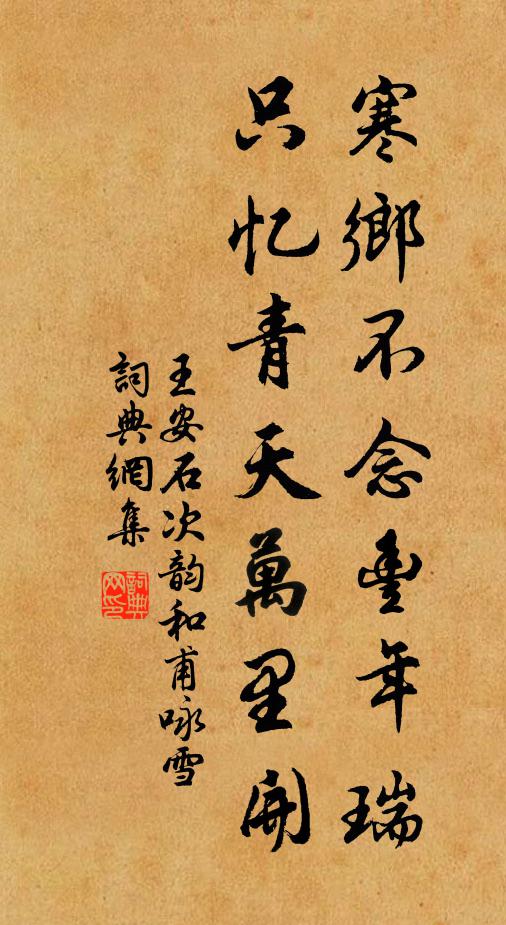 寒鄉不念豐年瑞
只忆青天萬里開
王安石次韵和甫咏雪
詞典網集
詞典网印